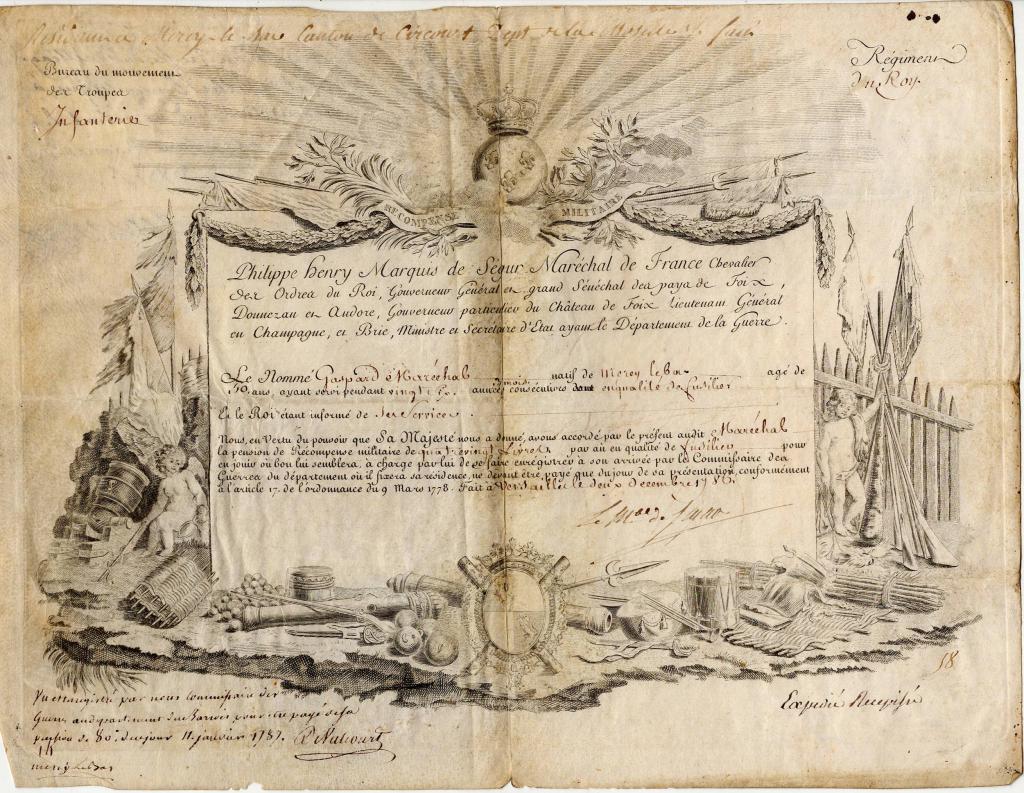 Résidence a Mercy-le-bas Canton de Circourt Dept de la Moselle
Bureau du mouvement
des Troupes
Infanterie
Régiment
du Roy.
RECOMPENSE MILITAIRE
Philippe Henry Marquis de Ségur Maréchal de France Chevalier
des Ordres du Roi, Gouverneur Général et grand Sénéchal des pays de Foix,
Donnezan et Andore, Gouverneur particulier du Château de Foix Lieutenant Général
en Champagne, et Brie, Ministre et Secretaire d'Etat ayant le Département de la Guerre.
Le Nommé Gaspard Maréchal natif de Mercy le bas agé de
ans, ayant servi pendant vingt années mois consécutives enqualité de fusilier
Et le Roi étant informé de ses Services.
Nous, en Vertu du pouvoir que Sa Majesté nous a donné, avons accordé par le présent audit Maréchal
la pension de Récompense militaire de quatrevingt Livres par an en qualité de fusilier pour
en jouir où bon lui semblera, à charge par lui de se faire enregistrer à son arrivée par le Commissaire des
Guerres du département où il fixera sa résidence, ne devant être payé que du jour de sa présentation, conformément
à l'article 17. de l'ordonnance du 9 Mars 1778. Fait à Versailles le deux Decembre 1786.
Le Mal de Segur
58
Expedié Recepissé
Vu et enregistré par nous Commissaire des
Guerres au departement du Barrois pour être payé de sa
pension de 80 du jour 11. janvier 1787.
mercy Le Bas